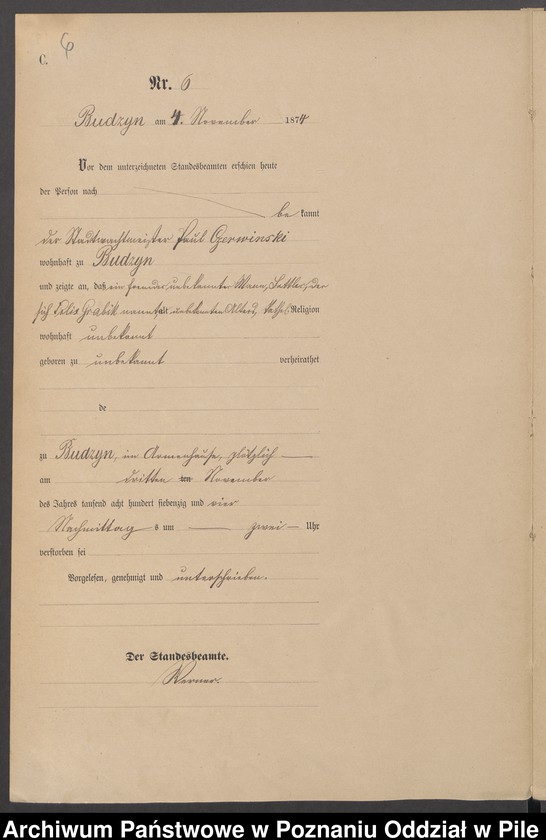 C.
6
Nr. 6
Budzyn am 4. November 1874
Vor dem unterzeichneten Standesbeamten erschien heute
der Person nach
be kannt
der Stadtwachtmeister Paul Czerwinski
wohnhaft zu Budzyn
und zeigte an, daß ein fremder unbekannter Mann, Sattler, der
sich Felix Grabik nannte alt unbekannten Alters, kathol. Religion
wohnhaft unbekannt
geboren zu unbekannt verheirathet
de
zu Budzyn, im Armenhause, plötzlich
am dritten ten November
des Jahres tausend acht hundert siebenzig und vier
Nachmittag s um zwei Uhr
verstorben sei
Vorgelesen, genehmigt und unterschrieben.
Der Standesbeamte.
Werner.
Archiwum Państwowe w Poznaniu Oddział w Pile